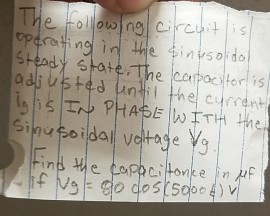 The following circuit is
operating in the sinusoidal
steady state. The capacitor is
adjusted until the current
ig is IN PHASE WITH the
sinusoidal voltage Vg.
Find the capacitance in μF
if Vg = 80 cos(5000t) V